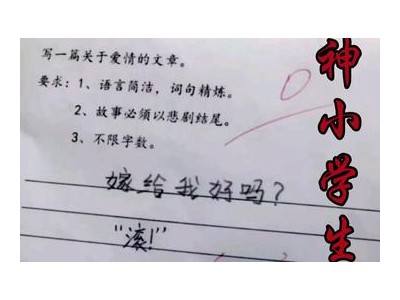 写一篇关于爱情的文章。
要求：1、语言简洁，词句精炼。
2、故事必须以悲剧结尾。
3、不限字数。
嫁给我好吗？
“滚!”
0
神小学生